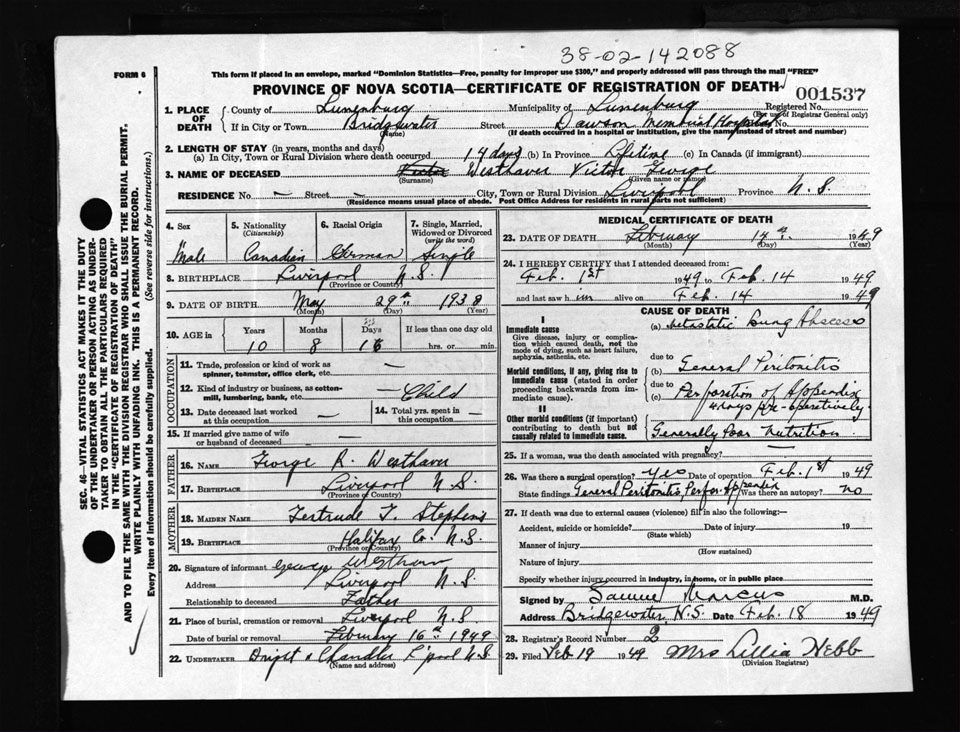 38-02-142088
FORM 6
This form if placed in an envelope, marked "Dominion Statistics—Free, penalty for improper use $300," and properly addressed will pass through the mail "FREE"
PROVINCE OF NOVA SCOTIA—CERTIFICATE OF REGISTRATION OF DEATH
001537
1. PLACE OF DEATH County of Lunenburg Municipality of Lunenburg Registered No.
(For use of Registrar General only)
If in City or Town Bridgewater Street Dawson Memorial Hospital No.
(Name) (If death occurred in a hospital or institution, give the name instead of street and number)
2. LENGTH OF STAY (in years, months and days)
(a) In City, Town or Rural Division where death occurred 14 days (b) In Province Lifetime (c) In Canada (if immigrant)
3. NAME OF DECEASED Victor Westhaver Victor George
(Surname) (Given name or names)
RESIDENCE No. — Street — City, Town or Rural Division Liverpool Province N.S.
(Residence means usual place of abode. Post Office Address for residents in rural parts not sufficient)
4. Sex 5. Nationality (Citizenship) 6. Racial Origin 7. Single, Married, Widowed or Divorced (write the word)
Male Canadian German Single
8. BIRTHPLACE Liverpool N.S.
(Province or Country)
9. DATE OF BIRTH May 29th 1938
(Month) (Day) (Year)
10. AGE in Years Months Days If less than one day old
10 8 16 hrs. or min.
OCCUPATION
11. Trade, profession or kind of work as spinner, teamster, office clerk, etc. —
12. Kind of industry or business, as cotton-mill, lumbering, bank, etc. — Child
13. Date deceased last worked at this occupation — 14. Total yrs. spent in this occupation —
15. If married give name of wife or husband of deceased —
FATHER
16. NAME George R. Westhaver
17. BIRTHPLACE Liverpool N.S.
(Province or Country)
MOTHER
18. MAIDEN NAME Gertrude T. Stephens
19. BIRTHPLACE Halifax Co. N.S.
(Province or Country)
20. Signature of informant George Westhaver
Address Liverpool N.S.
Relationship to deceased Father
21. Place of burial, cremation or removal Liverpool N.S.
Date of burial or removal February 16th 1949
22. UNDERTAKER & Chandler L'pool N.S.
(Name and address)
MEDICAL CERTIFICATE OF DEATH
23. DATE OF DEATH February 14th 1949
(Month) (Day) (Year)
24. I HEREBY CERTIFY that I attended deceased from:
Feb. 1st 1949 to Feb. 14 1949
and last saw him alive on Feb. 14 1949
CAUSE OF DEATH
I
Immediate cause
Give disease, injury or complication which caused death, not the mode of dying, such as heart failure, asphyxia, asthenia, etc.
(a) Metastatic Lung Abscess
due to
Morbid conditions, if any, giving rise to immediate cause (stated in order proceeding backwards from immediate cause).
(b) General Peritonitis
due to
(c) Perforation of Appendix
4 days pre-operatively
II
Other morbid conditions (if important) contributing to death but not causally related to immediate cause.
Generally Poor Nutrition
25. If a woman, was the death associated with pregnancy?
26. Was there a surgical operation? Yes Date of operation Feb. 1st 1949
State findings General Peritonitis, Perfor. Appendix Was there an autopsy? no
27. If death was due to external causes (violence) fill in also the following:—
Accident, suicide or homicide? Date of injury 19
(State which)
Manner of injury
(How sustained)
Nature of injury
Specify whether injury occurred in industry, in home, or in public place
Signed by Samuel Marcus M.D.
Address Bridgewater, N.S. Date Feb. 18 1949
28. Registrar's Record Number 2
29. Filed Feb 19 1949 Mrs Lillia Webb
(Division Registrar)
SEC. 46—VITAL STATISTICS ACT MAKES IT THE DUTY
OF THE UNDERTAKER OR PERSON ACTING AS UNDER-
TAKER TO OBTAIN ALL THE PARTICULARS REQUIRED
IN THE "CERTIFICATE OF REGISTRATION OF DEATH"
AND TO FILE THE SAME WITH THE DIVISION REGISTRAR WHO SHALL ISSUE THE BURIAL PERMIT.
WRITE PLAINLY WITH UNFADING INK. THIS IS A PERMANENT RECORD.
Every item of information should be carefully supplied. (See reverse side for instructions.)